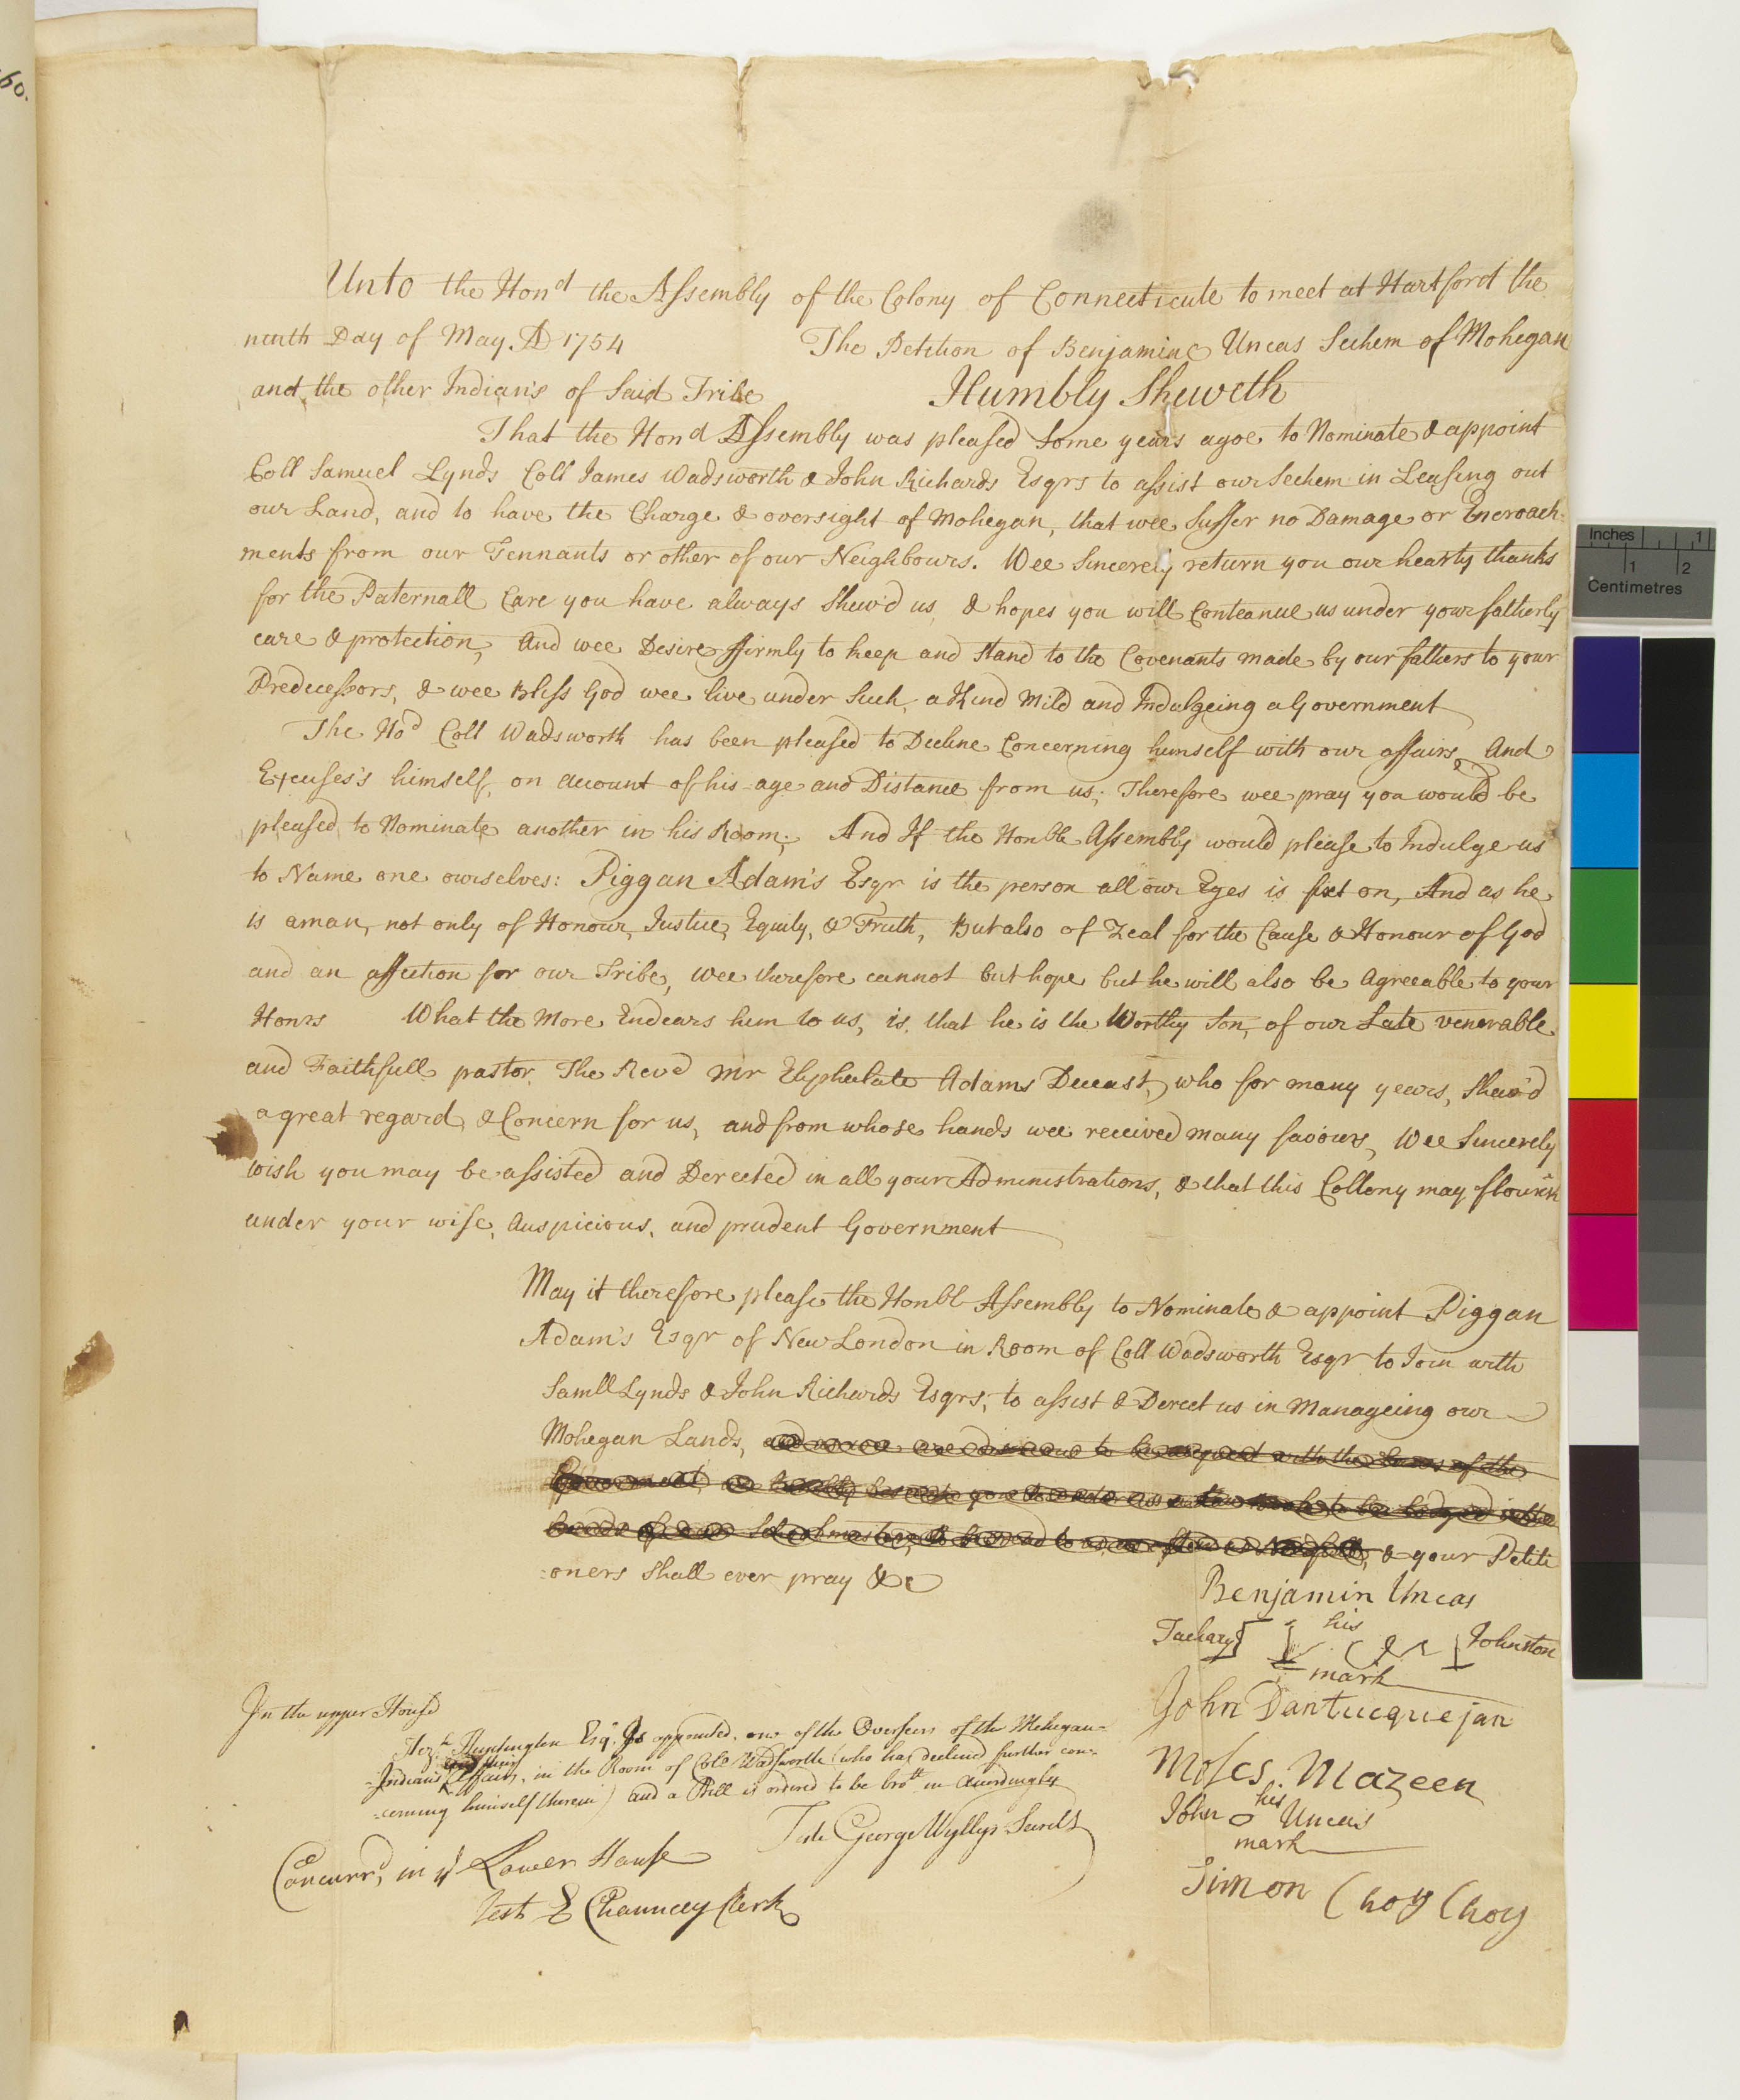 60.
Unto the Hond the Assembly of the Colony of Connecticute to meet at Hartford the
ninth Day of May AD 1754 The Petition of Benjamine Uncas Sechem of Mohegan
and the other Indian's of Said Tribe Humbly Sheweth
That the Hond Assembly was pleased Some years agoe to Nominate & appoint
Coll Samuel Lynds Coll James Wadsworth & John Richards Esqrs to assist our Sechem in Leasing out
our Land, and to have the Charge & oversight of Mohegan, that wee Suffer no Damage or Encroach-
ments from our Tennants or other of our Neighbours. Wee Sincerely return you our hearty thanks
for the Paternall Care you have always Shew'd us, & hopes you will Conteanue us under your fatherly
care & protection, And wee Desire ffirmly to keep and Stand to the Covenants made by our fathers to your
Predecessors, & wee Bless God wee live under Such, a Kind Mild and Indulgeing a Government
The Hod Coll Wadsworth has been pleased to Decline Concerning himself with our affairs, And
Excuses's himself, on account of his age and Distance from us; Therefore wee pray you would be
pleased to Nominate another in his Room; And If the Honble Assembly would please to Indulge us
to Name one ourselves: Piggan Adam's Esqr is the person all our Eyes is fixt on, And as he
is a man, not only of Honour, Justice, Equity, & Truth, But also of Zeal for the Cause & Honour of God
and an affection for our Tribe, wee therefore cannot but hope but he will also be Agreeable to your
Honrs What the More Endears him to us, is, that he is the Worthy Son, of our Late venerable
and Faithfull pastor The Revd Mr Elyphelate Adams Deceast, who for many years, Shew'd
a great regard & Concern for us, and from whose hands wee received many favours, Wee Sincerely
wish you may be assisted and Derected in all your Administrations, & that this Collony may flourish
under your wise, Auspicious, and prudent Government
May it therefore please the Honbl Assembly to Nominate & appoint Piggan
Adam's Esqr of New London in Room of Coll Wadsworth Esqr to Join with
Samll Lynds & John Richards Esqrs, to assist & Derect us in Manageing our
Mohegan Lands,
& your Petiti
:oners Shall ever pray &c
Benjamin Uncas
Zachary his Johnston
mark
John Dantucquejan
Moses Mazeen
his
John O Uncas
mark
Simon Choy Choy
In the upper House
Hezh Huntington Esqr Is appointed, one of the Overseers of the Mohegan-
-Indians Affairs, in the Room of Coll Wadsworth (who has declined further con-
-cerning himself therein) and a Bill is ordered to be brot in accordingly
Test George Wyllys Secrety
Concurrd, in ye Lower House
Test E Chauncey Clerk
Inches 1
1 2
Centimetres